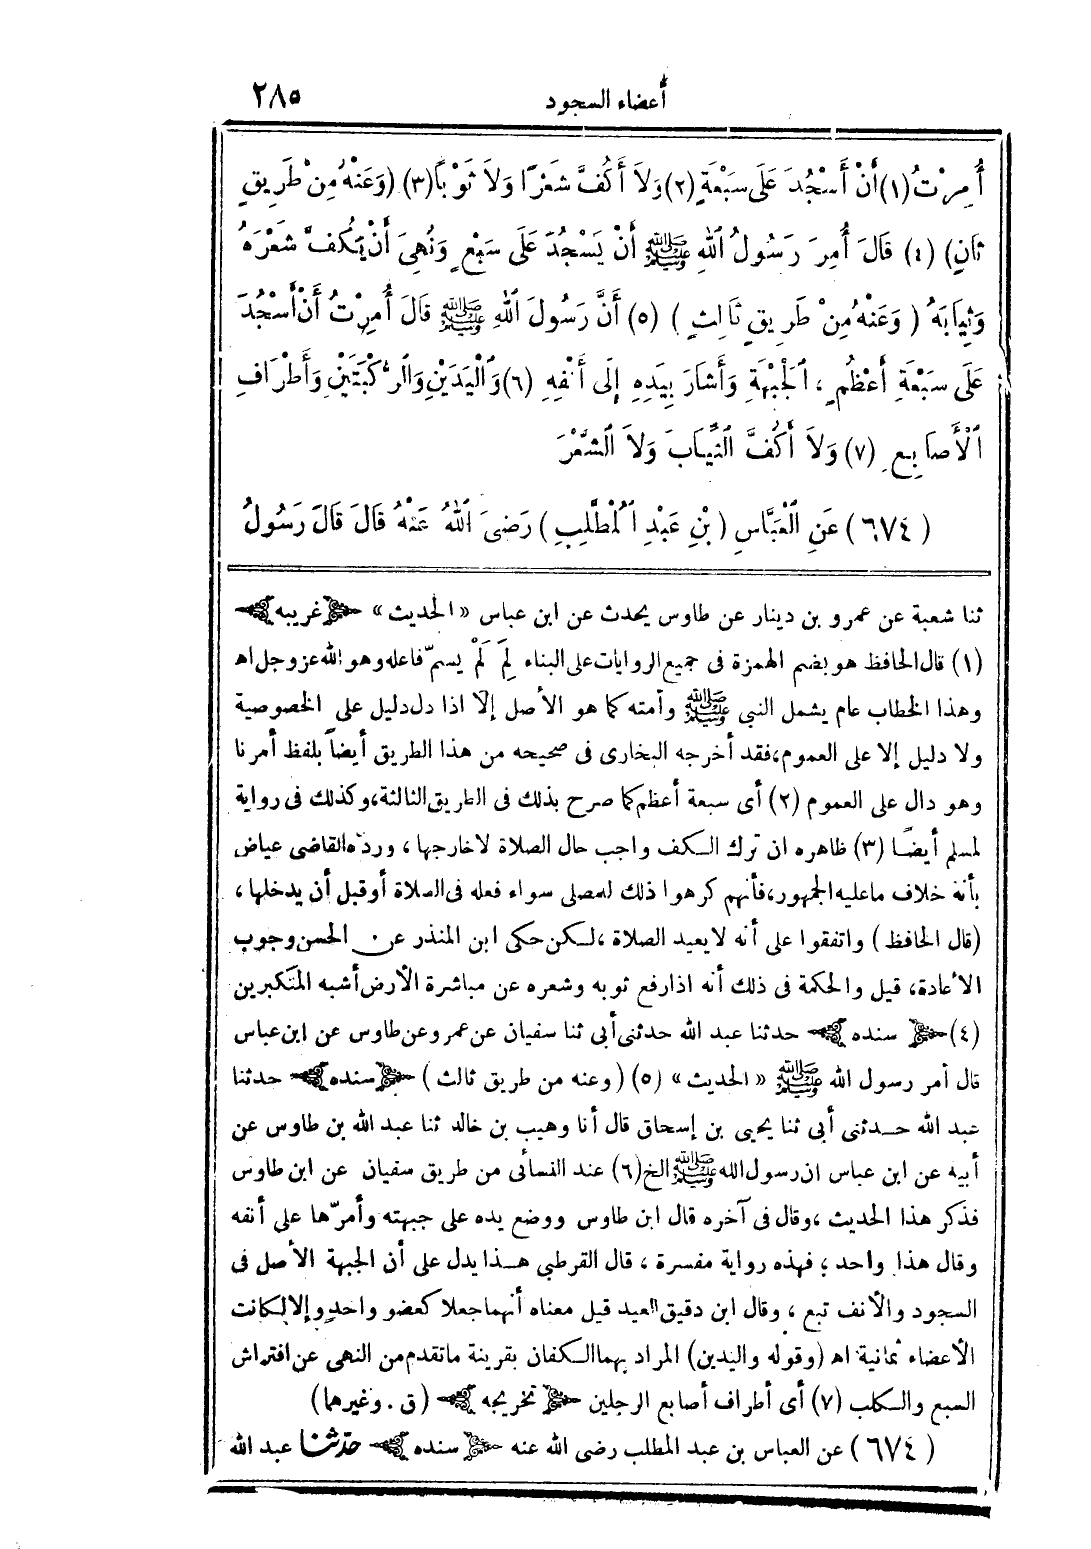 أعضاء السجود ٢٨٥
أُمِرْتُ (١) أَنْ أَسْجُدَ عَلَى سَبْعَةٍ (٢) وَلَا أَكُفَّ شَعْرًا وَلَا ثَوْبًا (٣) (وَعَنْهُ مِنْ طَرِيقٍ
ثَانٍ) (٤) قَالَ أُمِرَ رَسُولُ اللهِ ﷺ أَنْ يَسْجُدَ عَلَى سَبْعٍ وَنُهِىَ أَنْ يَكُفَّ شَعْرَهُ
وَثِيَابَهُ (وَعَنْهُ مِنْ طَرِيقٍ ثَالِثٍ) (٥) أَنَّ رَسُولَ اللهِ ﷺ قَالَ أُمِرْتُ أَنْ أَسْجُدَ
عَلَى سَبْعَةِ أَعْظُمٍ ، الْجَبْهَةِ وَأَشَارَ بِيَدِهِ إِلَى أَنْفِهِ (٦) وَالْيَدَيْنِ وَالرُّكْبَتَيْنِ وَأَطْرَافِ
الْأَصَابِعِ (٧) وَلَا أَكُفَّ الثِّيَابَ وَلَا الشَّعْرَ
(٦٧٤) عَنِ الْعَبَّاسِ (بْنِ عَبْدِ الْمُطَّلِبِ) رَضِىَ اللهُ عَنْهُ قَالَ قَالَ رَسُولُ
ثنا شعبة عن عمرو بن دينار عن طاوس يحدث عن ابن عباس « الحديث » ﴿غريبه﴾
(١) قال الحافظ هو بضم الهمزة فى جميع الروايات على البناء لِمَ لَمْ يسمّ فاعله وهو الله عز وجل اه
وهذا الخطاب عام يشمل النبي ﷺ وأمته كما هو الأصل إلا اذا دل دليل على الخصوصية
ولا دليل إلا على العموم، فقد أخرجه البخارى فى صحيحه من هذا الطريق أيضاً بلفظ أمرنا
وهو دال على العموم (٢) أى سبعة أعظم كما صرح بذلك فى الطريق الثالثة، وكذلك فى رواية
لمسلم أيضًا (٣) ظاهره ان ترك الكف واجب حال الصلاة لا خارجها ، ورده القاضى عياض
بأنه خلاف ما عليه الجمهور، فأنهم كرهوا ذلك للمصلى سواء فعله فى الصلاة أو قبل أن يدخلها ،
(قال الحافظ) واتفقوا على أنه لا يعيد الصلاة ، لكن حكى ابن المنذر عن الحسن وجوب
الأعادة، قيل والحكمة فى ذلك أنه اذا رفع ثوبه وشعره عن مباشرة الأرض أشبه المتكبرين
(٤) ﴿سنده﴾ حدثنا عبد الله حدثنى أبى ثنا سفيان عن عمرو عن طاوس عن ابن عباس
قال أمر رسول الله ﷺ « الحديث » (٥) (وعنه من طريق ثالث) ﴿سنده﴾ حدثنا
عبد الله حدثنى أبى ثنا يحيى بن إسحاق قال أنا وهيب بن خالد ثنا عبد الله بن طاوس عن
أبيه عن ابن عباس ان رسول الله ﷺ الخ (٦) عند النسائى من طريق سفيان عن ابن طاوس
فذكر هذا الحديث ، وقال فى آخره قال ابن طاوس ووضع يده على جبهته وأمرّها على أنفه
وقال هذا واحد ؛ فهذه رواية مفسرة ، قال القرطبى هذا يدل على أن الجبهة الأصل فى
السجود والأنف تبع ، وقال ابن دقيق العيد قيل معناه أنهما جعلا كعضو واحد وإلا لكانت
الأعضاء ثمانية اه (وقوله واليدين) المراد بهما الكفان بقرينة ما تقدم من النهى عن افتراش
السبع والكلب (٧) أى أطراف أصابع الرجلين ﴿تخريجه﴾ (ق . وغيرهما)
(٦٧٤) عن العباس بن عبد المطلب رضى الله عنه ﴿سنده﴾ حدّثنا عبد الله